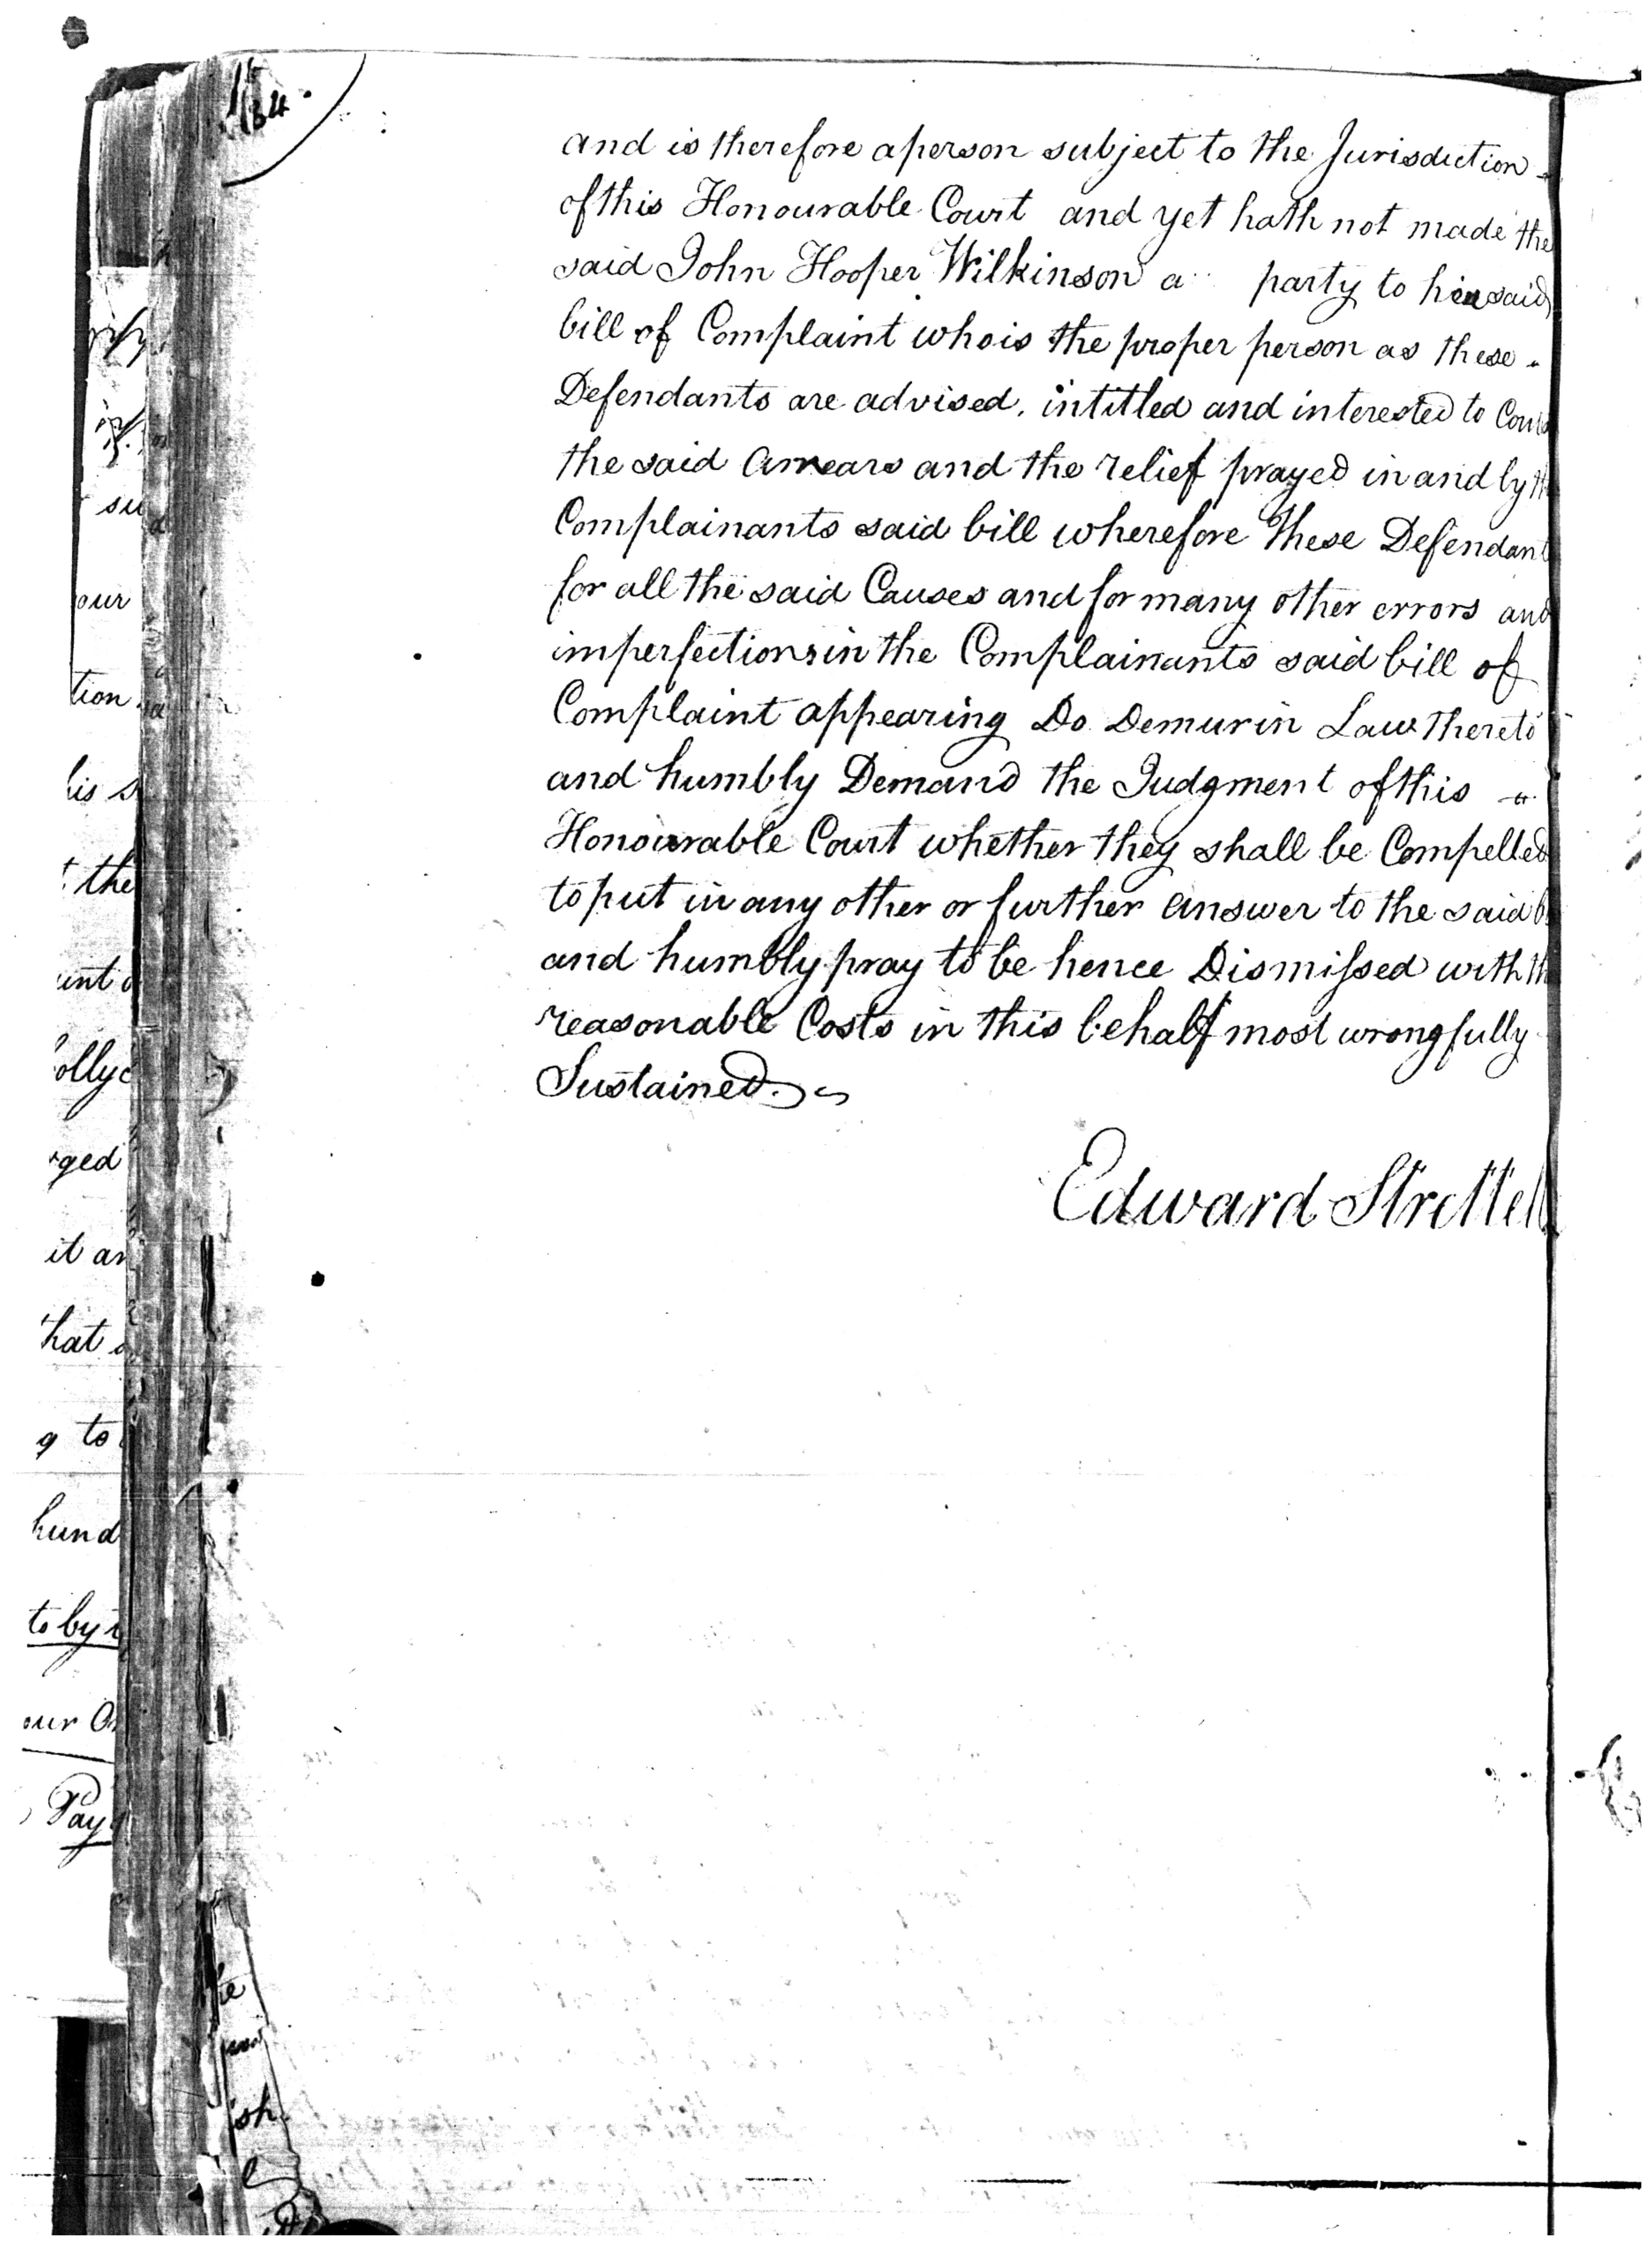 and is therefore a person subject to the Jurisdiction
of this Honourable Court and yet hath not made the
said John Hooper Wilkinson a party to his said
bill of Complaint who is the proper person as these
Defendants are advised, intitled and interested to
the said Arrears and the relief prayed in and by
Complainants said bill wherefore these Defendant
for all the said Causes and for many other errors and
imperfections in the Complainants said bill of
Complaint appearing Do Demur in Law thereto
and humbly Demand the Judgment of this
Honourable Court whether they shall be Compelled
to put in any other or further answer to the said
and humbly pray to be hence Dismissed with
reasonable Costs in this behalf most wrongfully
Sustained.
Edward Strettell